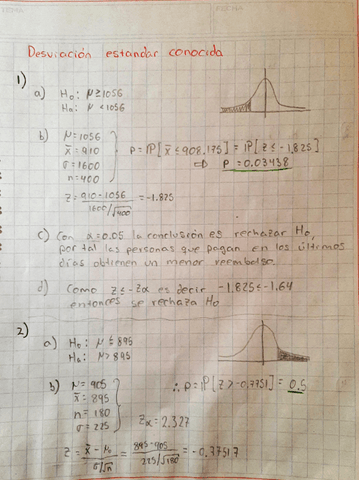 Desviación estandar conocida
1)
a) H₀: μ ≥ 1056
Hₐ: μ < 1056
b) μ = 1056
x̄ = 910
σ = 1600
n = 400
P = P[x̄ ≤ 908.175] = P[z ≤ -1.825]
⇒ P = 0.03438
z = 910 - 1056 / 1600/√400 = -1.825
c) Con α = 0.05 la conclusión es rechazar H₀,
por tal las personas que pagan en los últimos
días obtienen un menor reembolso.
d) Como z ≤ -zα es decir -1.825 ≤ -1.64
entonces se rechaza H₀
2)
a) H₀: μ ≤ 895
Hₐ: μ > 895
b) μ = 905
x̄ = 895
n = 180
σ = 225
∴ P = P[z > -0.7751] = 0.5
zα = 2.327
z = x̄ - μ₀ / σ/√n = 895 - 905 / 225/√180 = -0.77517